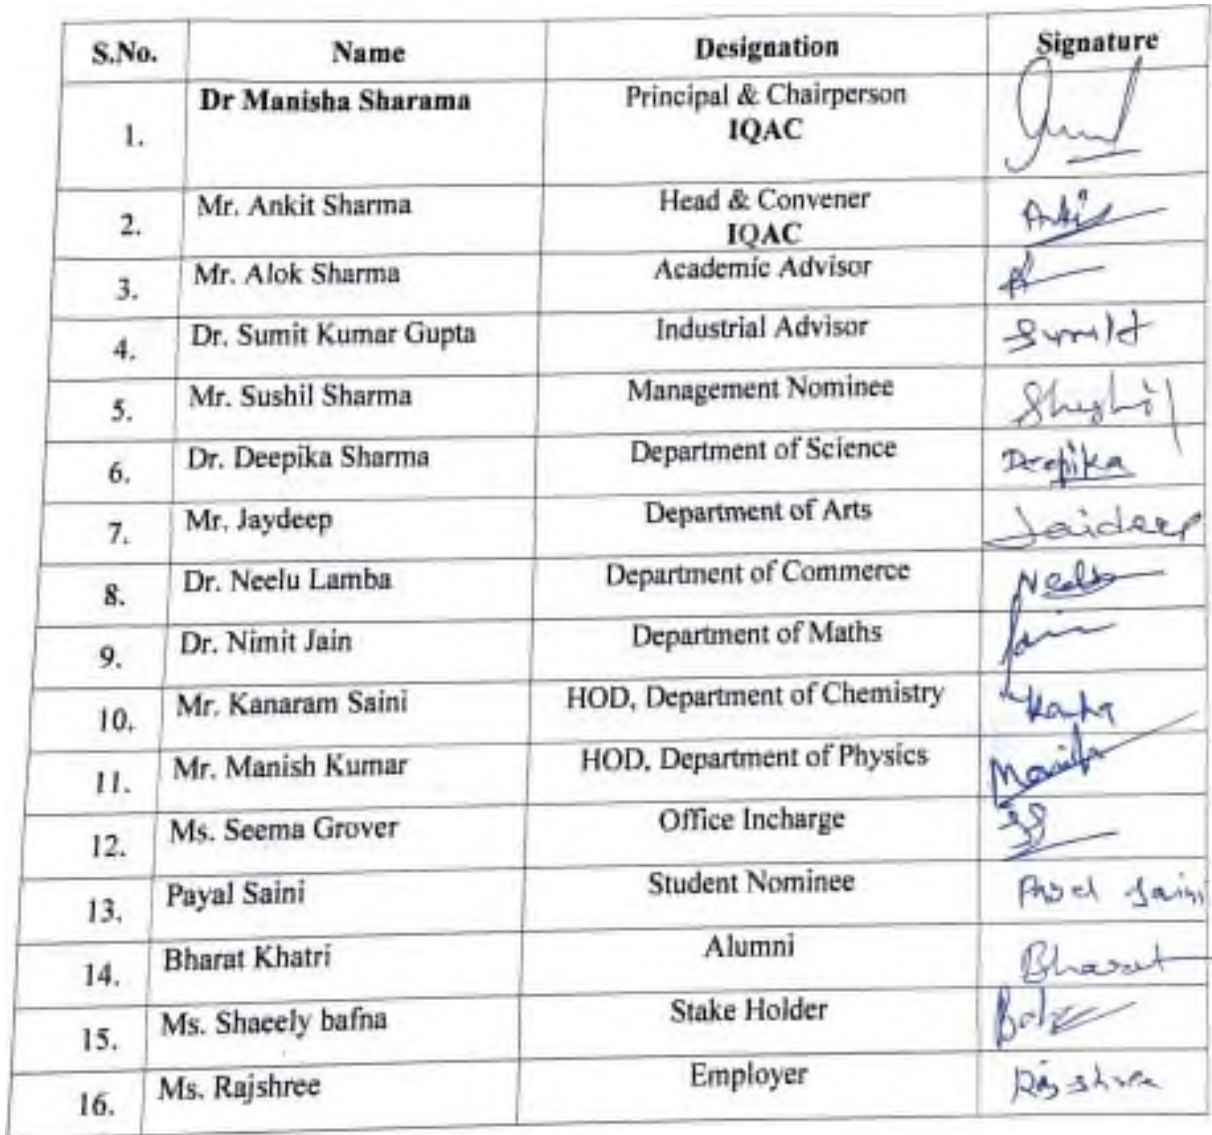 S.No. Name Designation Signature
1. Dr Manisha Sharama Principal & Chairperson
IQAC
2. Mr. Ankit Sharma Head & Convener Ankit
IQAC
3. Mr. Alok Sharma Academic Advisor
4. Dr. Sumit Kumar Gupta Industrial Advisor Sumit
5. Mr. Sushil Sharma Management Nominee
6. Dr. Deepika Sharma Department of Science Deepika
7. Mr. Jaydeep Department of Arts Jaideep
8. Dr. Neelu Lamba Department of Commerce Neelu
9. Dr. Nimit Jain Department of Maths Jain
10. Mr. Kanaram Saini HOD, Department of Chemistry
11. Mr. Manish Kumar HOD, Department of Physics Manish
12. Ms. Seema Grover Office Incharge
13. Payal Saini Student Nominee Payal Saini
14. Bharat Khatri Alumni Bharat
15. Ms. Shaeely bafna Stake Holder
16. Ms. Rajshree Employer Rajshree